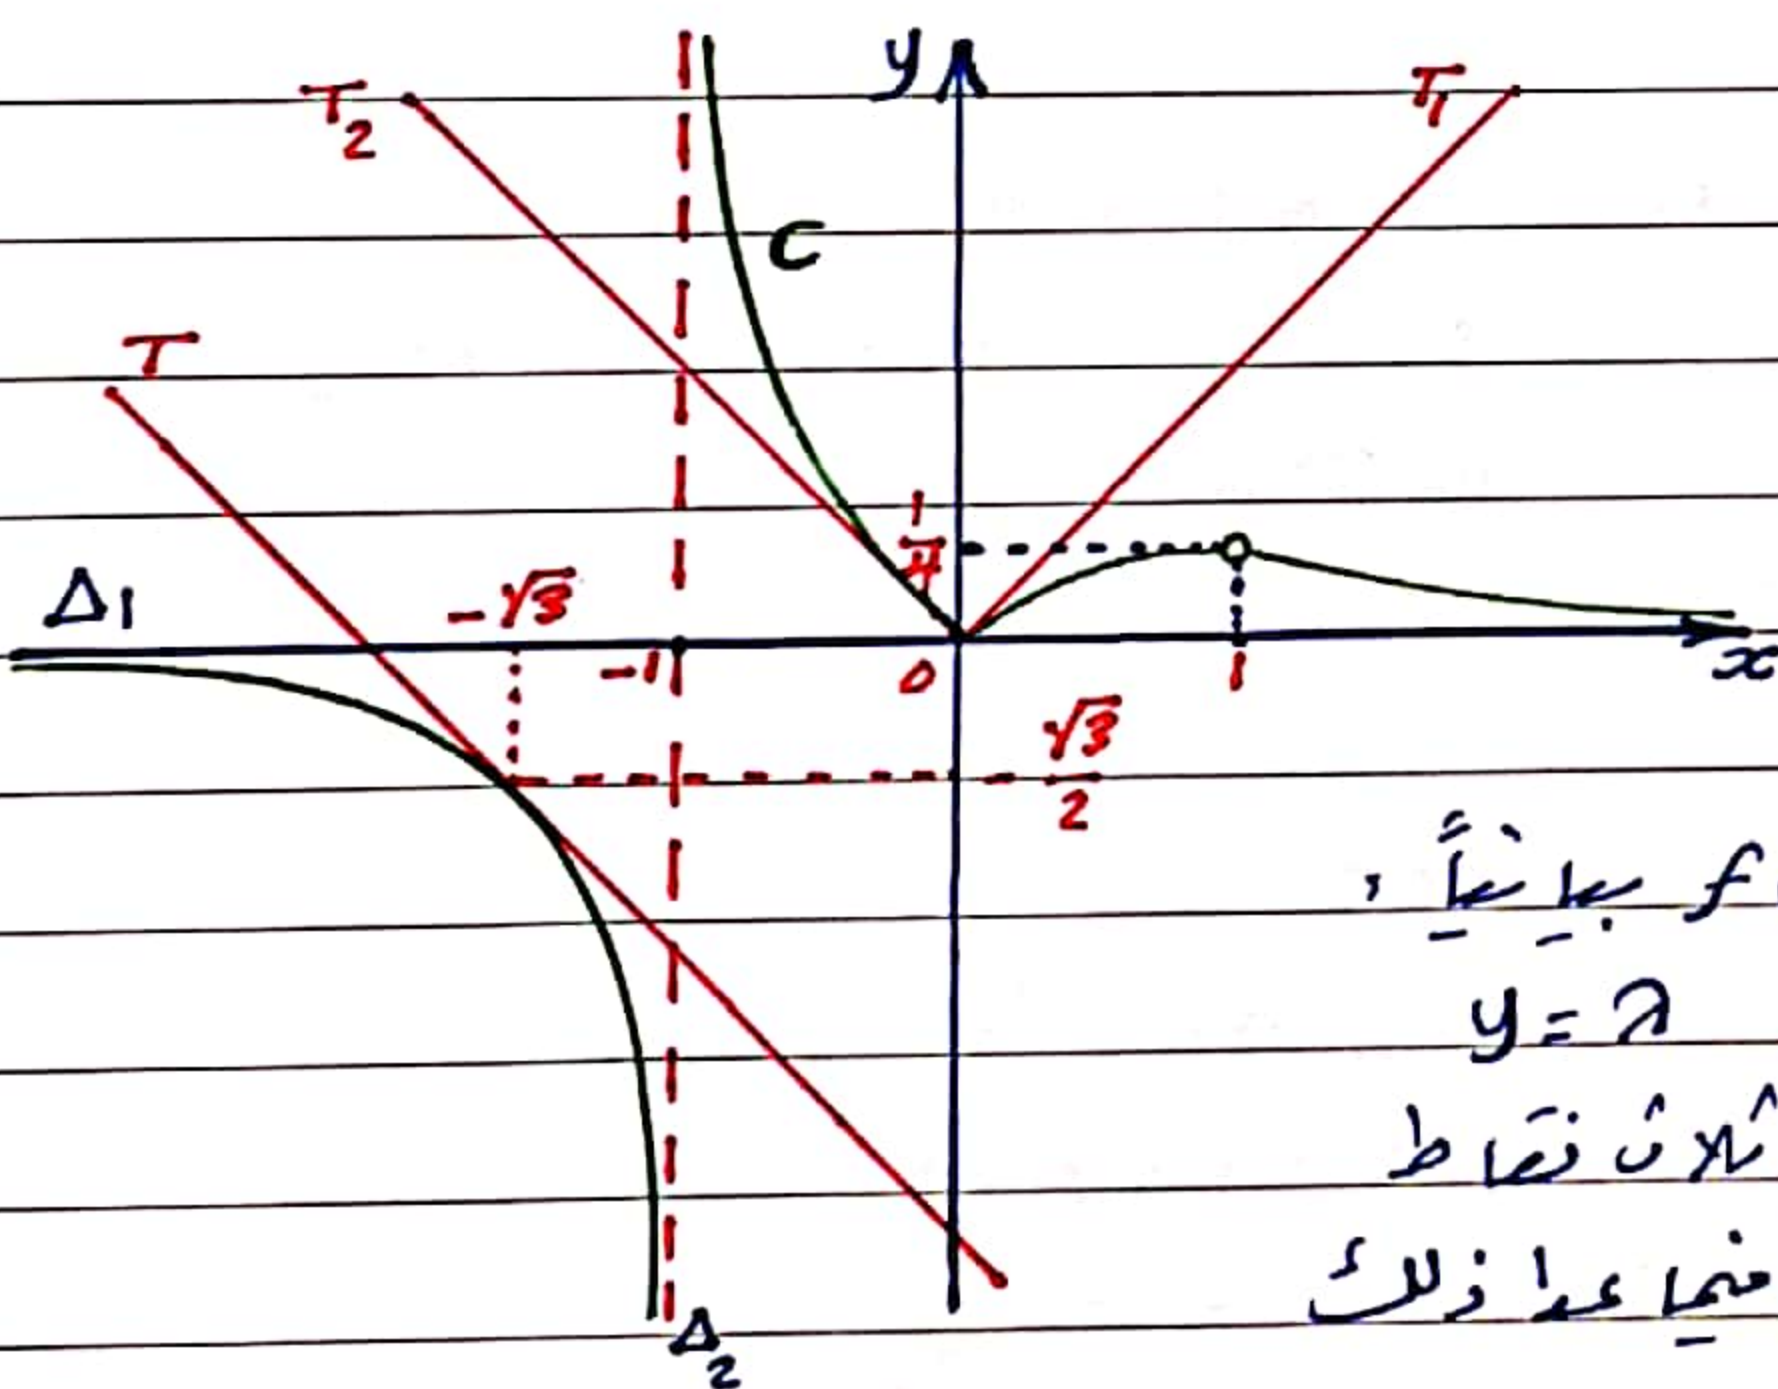 y
T₁
T₂
C
T
1/4
Δ1
-√3
-1
0
1
x
- √3/2
f بيانياً ،
y = λ
ثلاث نقاط
فيما عدا ذلك
Δ₂